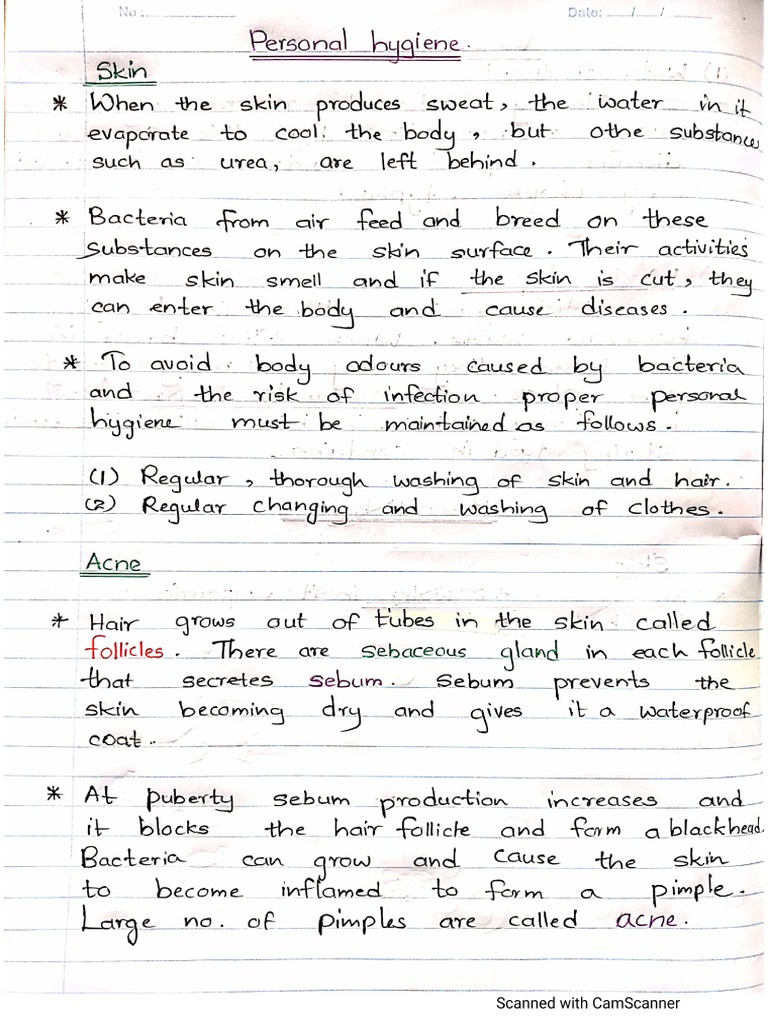 No: Date: / /
Personal hygiene.
Skin
* When the skin produces sweat, the water in it
evaporate to cool the body, but othe substances
such as urea, are left behind.
* Bacteria from air feed and breed on these
substances on the skin surface. Their activities
make skin smell and if the skin is cut, they
can enter the body and cause diseases.
* To avoid body odours caused by bacteria
and the risk of infection proper personal
hygiene must be maintained as follows.
(1) Regular, thorough washing of skin and hair.
(2) Regular changing and washing of clothes.
Acne
* Hair grows out of tubes in the skin called
follicles. There are sebaceous gland in each follicle
that secretes sebum. Sebum prevents the
skin becoming dry and gives it a waterproof
coat.
* At puberty sebum production increases and
it blocks the hair follicle and form a blackhead.
Bacteria can grow and cause the skin
to become inflamed to form a pimple.
Large no. of pimples are called acne.
Scanned with CamScanner